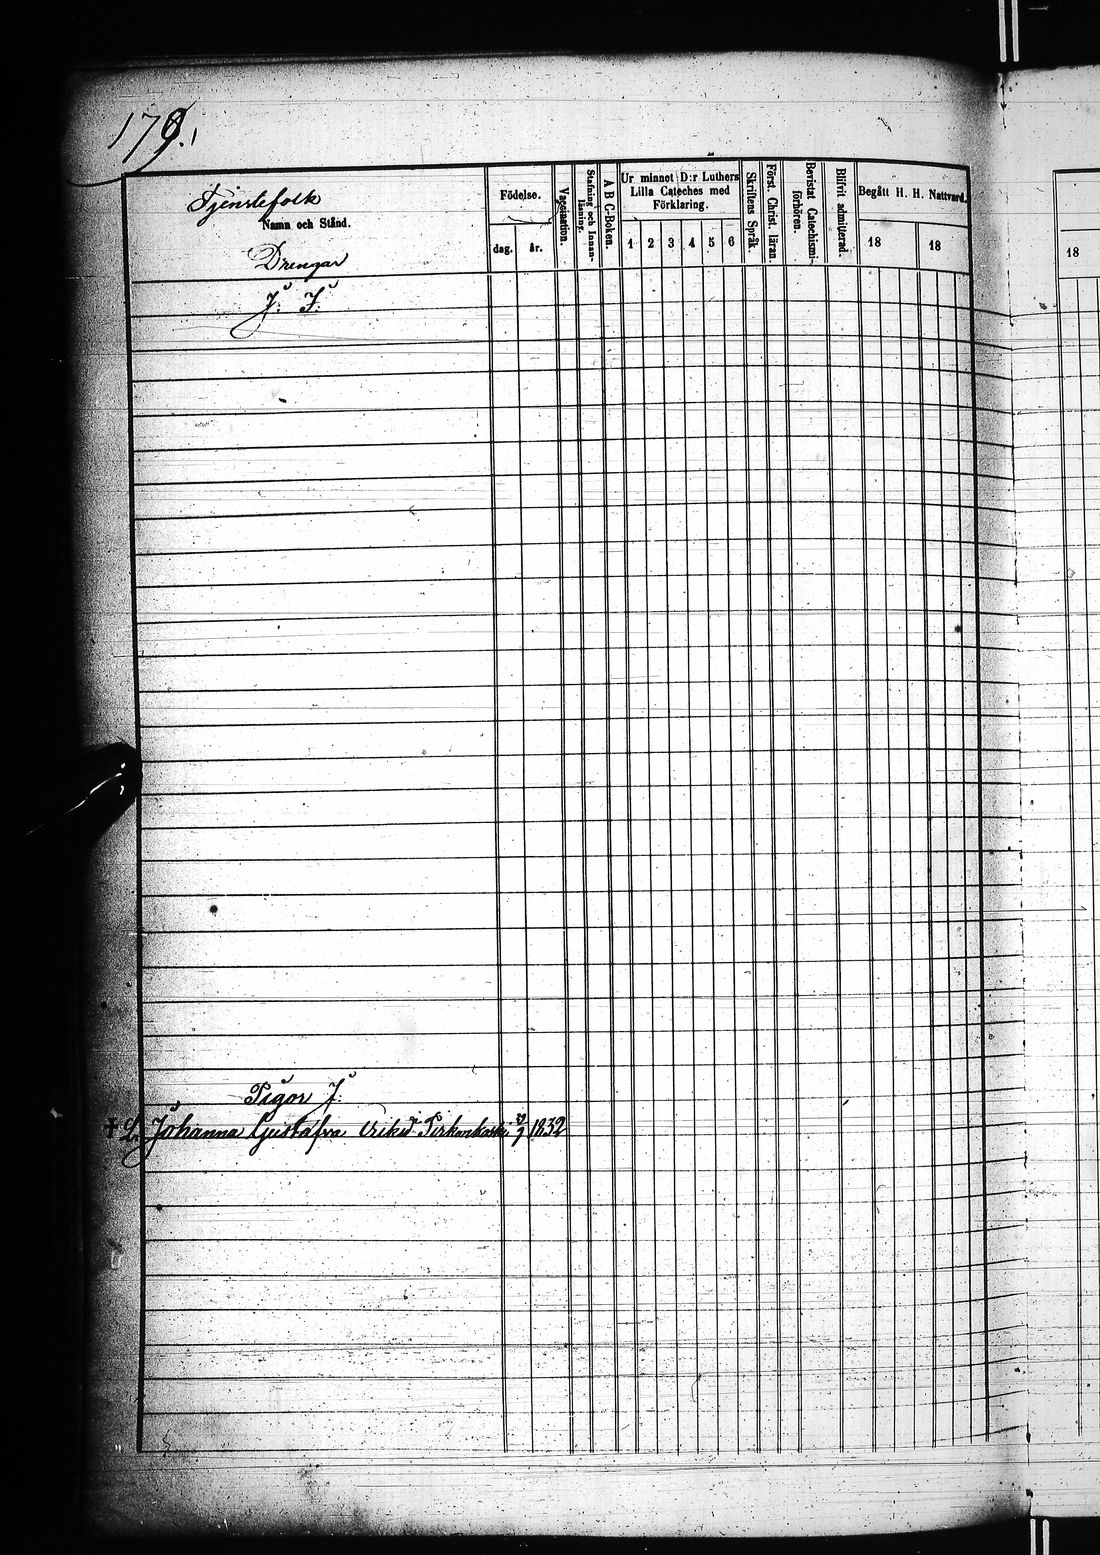 179.
Tjenstefolk
Namn och Stånd.
Drengar
J. I.
Födelse.
dag. år.
Vaccination.
Stafning och Innan-
läsning.
A B C-Boken.
Ur minnet D:r Luthers
Lilla Cateches med
Förklaring.
1 2 3 4 5 6
Skriftens Språk.
Först. Christ. läran.
Bevistat Catechismi-
förhören.
Blifvit admitterad.
Begått H. H. Nattvard.
18 18
18
Pigor J.
Johanna Gustafva 1832